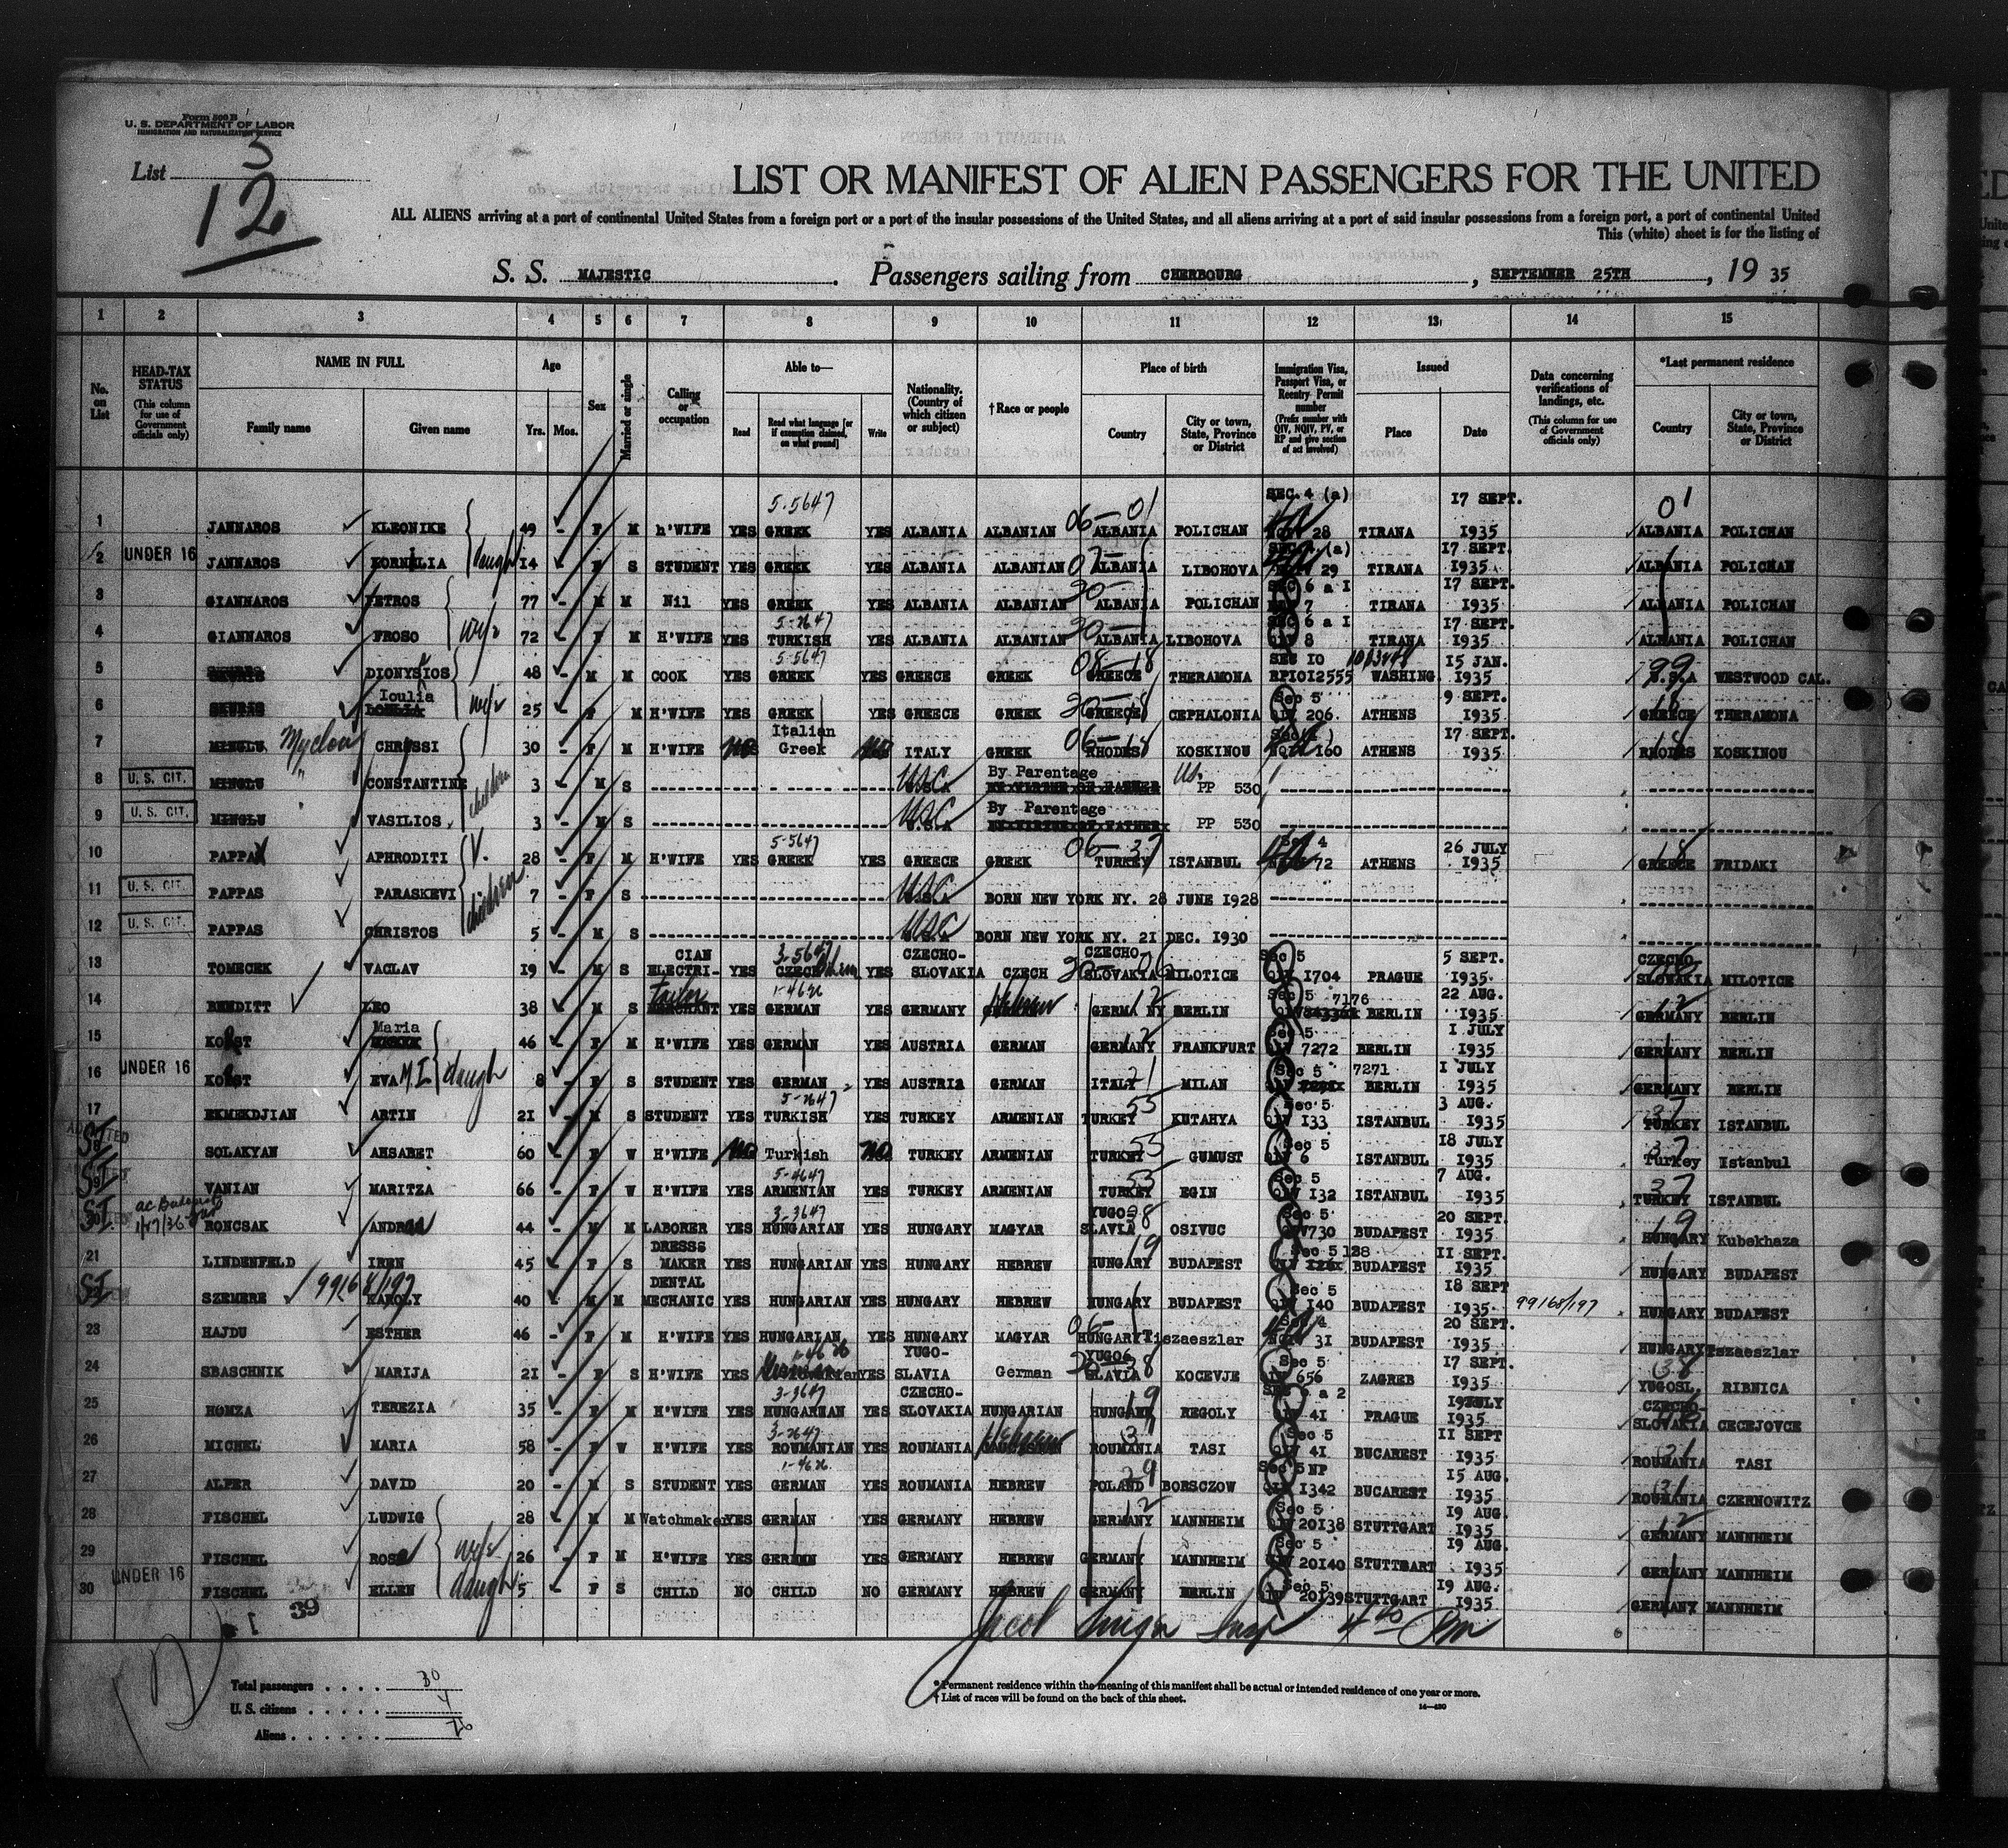 Form 500 B
U. S. DEPARTMENT OF LABOR
IMMIGRATION AND NATURALIZATION SERVICE
List 3
12
LIST OR MANIFEST OF ALIEN PASSENGERS FOR THE UNITED
ALL ALIENS arriving at a port of continental United States from a foreign port or a port of the insular possessions of the United States, and all aliens arriving at a port of said insular possessions from a foreign port, a port of continental United
This (white) sheet is for the listing of
S. S. MAJESTIC. Passengers sailing from CHERBOURG, SEPTEMBER 25TH, 19 35
1 2 3 4 5 6 7 8 9 10 11 12 13 14 15
No. on List
HEAD-TAX STATUS (This column for use of Government officials only)
NAME IN FULL Family name Given name
Age Yrs. Mos.
Sex
Married or single
Calling or occupation
Able to— Read Read what language [or if exemption claimed, on what ground] Write
Nationality. (Country of which citizen or subject)
†Race or people
Place of birth Country City or town, State, Province or District
Immigration Visa, Passport Visa, or Reentry Permit number (Prefix number with QIV, NQIV, PV, or RP and give section of act involved)
Issued Place Date
Data concerning verifications of landings, etc. (This column for use of Government officials only)
*Last permanent residence Country City or town, State, Province or District
5-5647 SEC. 4 (a) 17 SEPT. 01
1 JANNAROS KLEONIKE 49 - F M h'WIFE YES GREEK YES ALBANIA ALBANIAN 06-01 ALBANIA POLICHAN 28 TIRANA 1935 ALBANIA POLICHAN
2 UNDER 16 JANNAROS KORNELIA daugh 14 F S STUDENT YES GREEK YES ALBANIA ALBANIAN ALBANIA LIBOHOVA 29 TIRANA 17 SEPT. 1935 ALBANIA POLICHAN
3 GIANNAROS PETROS 77 - M M Nil YES GREEK YES ALBANIA ALBANIAN 30- ALBANIA POLICHAN SEC 6 a I 7 TIRANA 17 SEPT. 1935 ALBANIA POLICHAN
4 GIANNAROS FROSO wife 72 - F M H'WIFE YES 5-2647 TURKISH YES ALBANIA ALBANIAN 30- ALBANIA LIBOHOVA SEC 6 a I 8 TIRANA 17 SEPT. 1935 ALBANIA POLICHAN
5 DIONYSIOS 48 - M M COOK YES 5-5647 GREEK YES GREECE GREEK 08-18 GREECE THERAMONA SEC 10 RPIOI2555 WASHING. 15 JAN. 1935 99 U.S.A WESTWOOD CAL.
6 Ioulia wife 25 - F M H'WIFE YES GREEK YES GREECE GREEK 30-18 GREECE CEPHALONIA Sec 5 QIV 206. ATHENS 9 SEPT. 1935 18 GREECE THERAMONA
7 MINGLU CHRUSSI 30 - F M H'WIFE NO Italian Greek NO ITALY GREEK 06-18 RHODES KOSKINOU 160 ATHENS 17 SEPT. 1935 18 RHODES KOSKINOU
8 U. S. CIT. MINGLU " CONSTANTINE children 3 M S USC By Parentage PP 530
9 U. S. CIT. MINGLU VASILIOS 3 M S USC By Parentage PP 530
10 PAPPAS APHRODITI 28 - F M H'WIFE YES 5-5647 GREEK YES GREECE GREEK 06-37 TURKEY ISTANBUL 4 72 ATHENS 26 JULY 1935 18 GREECE FRIDAKI
11 U. S. CIT. PAPPAS PARASKEVI children 7 - F S USC BORN NEW YORK NY. 28 JUNE I928
12 U. S. CIT. PAPPAS CHRISTOS 5 - M S USC BORN NEW YORK NY. 2I DEC. I930
13 TOMECEK VACLAV 19 M S ELECTRI-CIAN YES 3-5647 CZECH YES CZECHO-SLOVAKIA CZECH CZECHO-SLOVAKIA MILOTICE Sec 5 QIV I704 PRAGUE 5 SEPT. 1935. CZECHO-SLOVAKIA MILOTICE
14 BENDITT LEO 38 - M S Tailor YES 1-4626 GERMAN YES GERMANY Hebrew GERMANY 12 BERLIN Sec 5 7176 BERLIN 22 AUG. 1935 12 GERMANY BERLIN
15 Maria 46 - F M H'WIFE YES GERMAN YES AUSTRIA GERMAN 12 GERMANY FRANKFURT Sec 5 QIV 7272 BERLIN I JULY 1935 GERMANY BERLIN
16 UNDER 16 EVA M.I. daugh 8 F S STUDENT YES GERMAN YES AUSTRIA GERMAN ITALY 21 MILAN Sec 5 7271 BERLIN I JULY 1935 GERMANY BERLIN
17 EKMEKDJIAN ARTIN 2I - M S STUDENT YES 5-2647 TURKISH YES TURKEY ARMENIAN 55 TURKEY KUTAHYA Sec 5 QIV I33 ISTANBUL 3 AUG. 1935 37 TURKEY ISTANBUL
SI SOLAKYAN ANSABET 60 F W H'WIFE NO Turkish NO TURKEY ARMENIAN 55 TURKEY GUMUST Sec 5 QIV 6 ISTANBUL 18 JULY 1935 37 Turkey Istanbul
SI VANIAN MARITZA 66 - F W H'WIFE YES 5-4647 ARMENIAN YES TURKEY ARMENIAN 55 TURKEY EGIN Sec 5 QIV I32 ISTANBUL 7 AUG. 1935 37 TURKEY ISTANBUL
SI 1/17/36 RONCSAK 44 - M M LABORER YES 3-3647 HUNGARIAN YES HUNGARY MAGYAR YUGO-SLAVIA 38 OSIVUC Sec 5 QIV730 BUDAPEST 20 SEPT. 1935 19 HUNGARY Kubekhaza
21 LINDENFELD IREN 45 - F S DRESSS MAKER YES HUNGARIAN YES HUNGARY HEBREW 19 HUNGARY BUDAPEST Sec 5 128 BUDAPEST II SEPT. 1935 HUNGARY BUDAPEST
SI SZEMERE 99168/197 KAROLY 40 - M M DENTAL MECHANIC YES HUNGARIAN YES HUNGARY HEBREW HUNGARY BUDAPEST Sec 5 QIV I40 BUDAPEST 18 SEPT 1935 99168/197 HUNGARY BUDAPEST
23 HAJDU ESTHER 46 - F M H'WIFE YES HUNGARIAN YES HUNGARY MAGYAR 06- HUNGARY Tiszaeszlar 3I BUDAPEST 20 SEPT. 1935 HUNGARY Tiszaeszlar
24 SBASCHNIK MARIJA 2I - F S H'WIFE YES 1-4626 YES YUGO-SLAVIA German YUGO-SLAVIA 38 KOCEVJE Sec 5 656 ZAGREB 17 SEPT. 1935 38 YUGOSL. RIBNICA
25 HOMZA TEREZIA 35 - F M H'WIFE YES 3-3647 HUNGARIAN YES CZECHO-SLOVAKIA HUNGARIAN 19 HUNGARY REGOLY 4I PRAGUE JULY 1935 CZECHO-SLOVAKIA CECEJOVCE
26 MICHEL MARIA 58 - F W H'WIFE YES 3-2647 ROUMANIAN YES ROUMANIA Hebrew 31 ROUMANIA TASI Sec 5 QIV 4I BUCAREST II SEPT 1935 31 ROUMANIA TASI
27 ALPER DAVID 20 - M S STUDENT YES 1-4626 GERMAN YES ROUMANIA HEBREW 29 POLAND BORSCZOW Sec 5 NP QIV I342 BUCAREST I5 AUG. 1935 31 ROUMANIA CZERNOWITZ
28 FISCHEL LUDWIG 28 - M M Watchmaker YES GERMAN YES GERMANY HEBREW 12 GERMANY MANNHEIM Sec 5 QIV 20I38 STUTTGART 19 AUG. 1935 12 GERMANY MANNHEIM
29 FISCHEL ROSA wife 26 - F M H'WIFE YES GERMAN YES GERMANY HEBREW GERMANY MANNHEIM Sec 5 20I40 STUTTGART 19 AUG. 1935 GERMANY MANNHEIM
30 UNDER 16 FISCHEL ELLEN daugh 5 F S CHILD NO CHILD NO GERMANY HEBREW GERMANY BERLIN Sec 5 20I39 STUTTGART 19 AUG. 1935 GERMANY MANNHEIM
39
Total passengers . . . . 30
U. S. citizens . . . . . 4
Aliens . . . . . . 26
*Permanent residence within the meaning of this manifest shall be actual or intended residence of one year or more.
†List of races will be found on the back of this sheet.
14—430